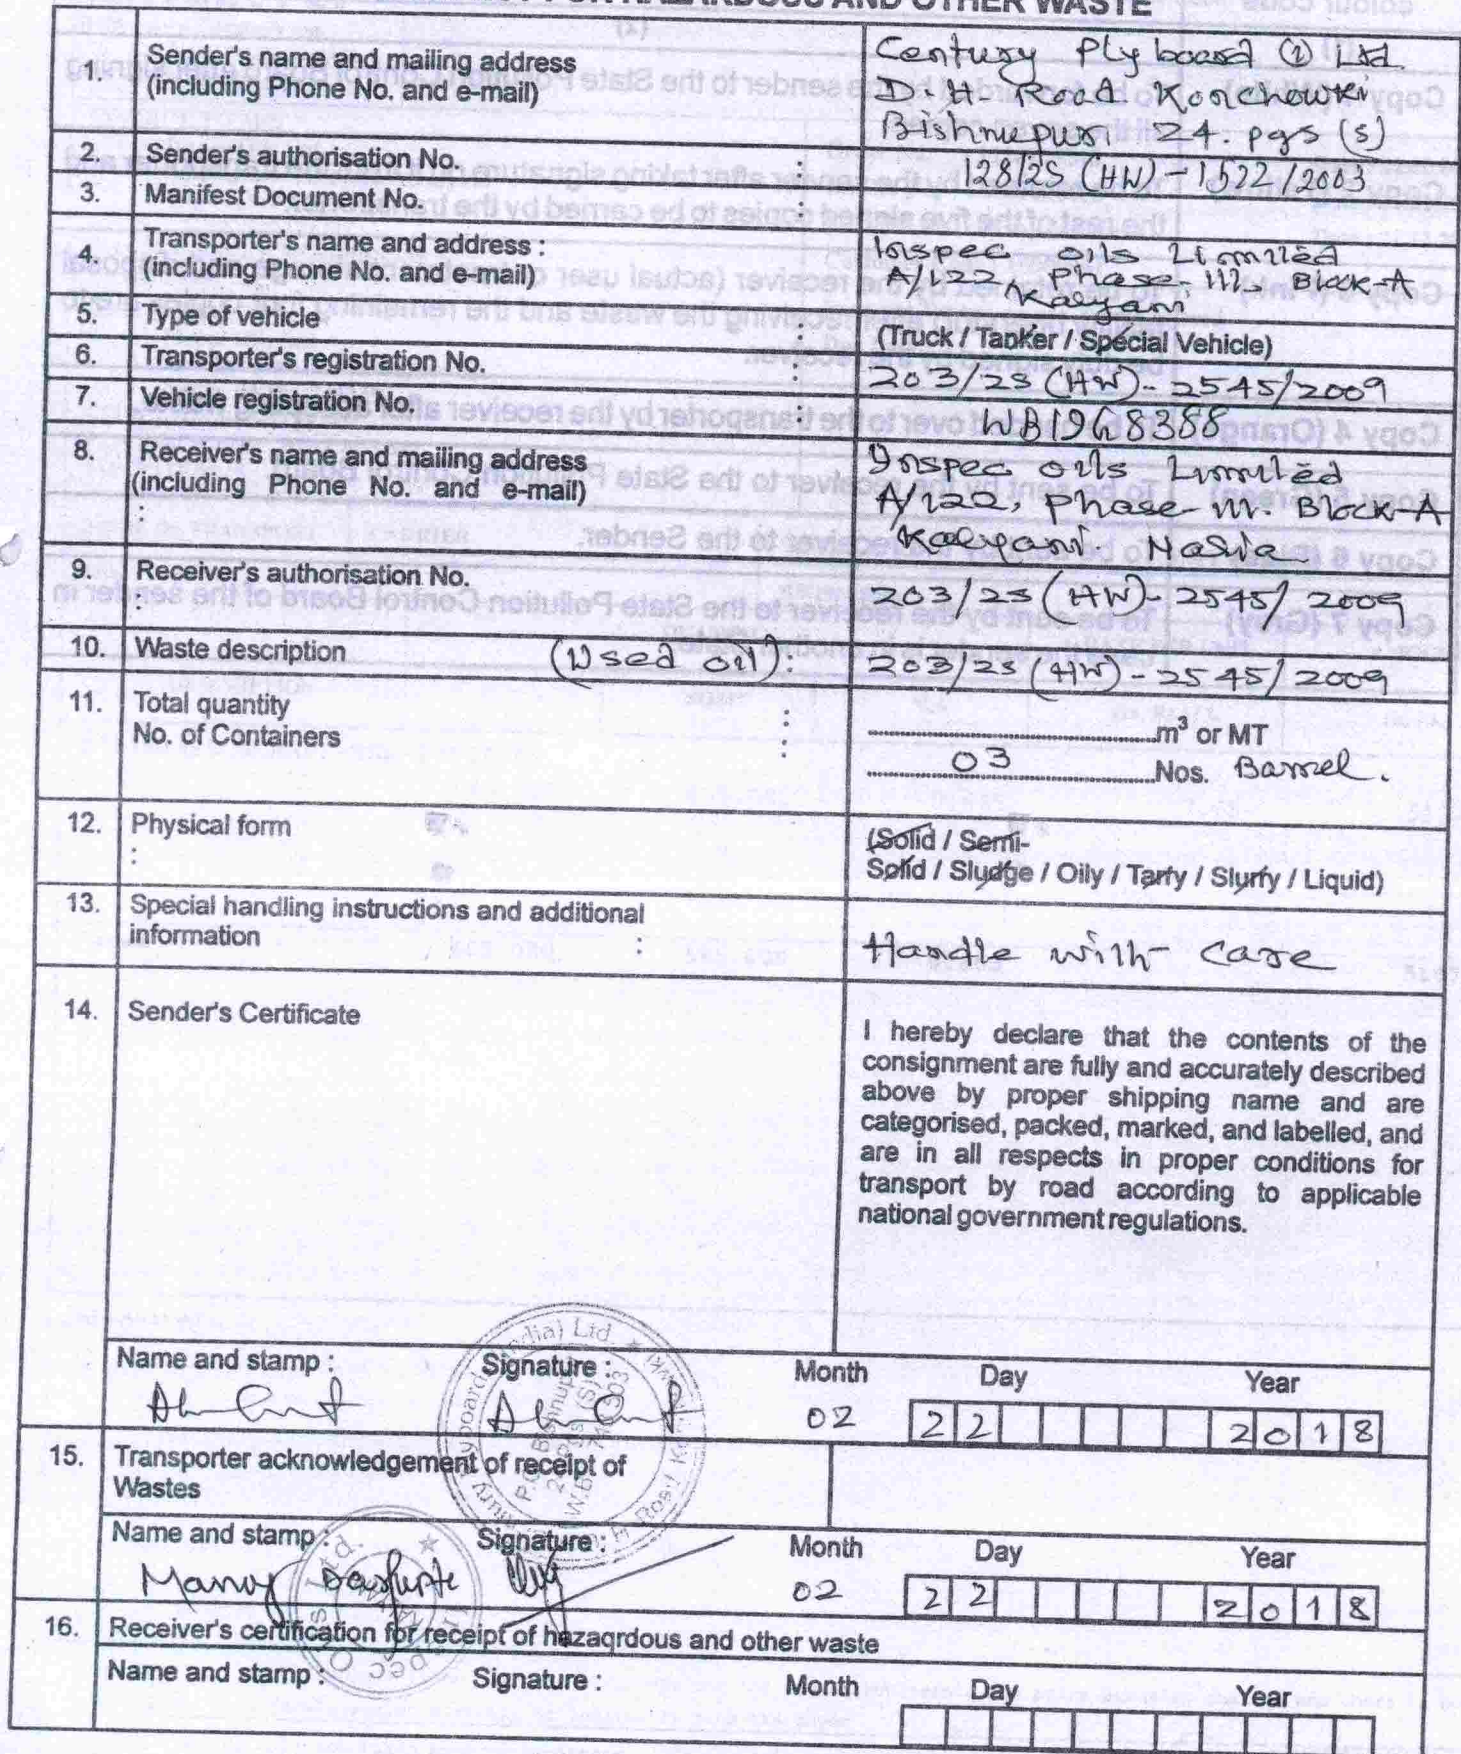 AND OTHER WASTE
1. Sender's name and mailing address
(including Phone No. and e-mail)
Century Ply board (I) Ltd.
D.H. Road Konchowki
Bishnupur 24. pgs (s)
2. Sender's authorisation No. :
128/2S (HW) - 1522/2003
3. Manifest Document No. :
4. Transporter's name and address :
(including Phone No. and e-mail)
Inspec oils Limited
A/122 Phase. III. Block-A
Kalyani
5. Type of vehicle :
(Truck / Tanker / Special Vehicle)
6. Transporter's registration No. :
203/2S (HW) - 2545/2009
7. Vehicle registration No. :
WB19G8388
8. Receiver's name and mailing address
(including Phone No. and e-mail)
:
Inspec oils Limited
A/122, Phase-III. Block-A
Kalyani. Nadia
9. Receiver's authorisation No.
:
203/2S (HW) - 2545/2009
10. Waste description (Used oil) :
203/2S (HW) - 2545/2009
11. Total quantity :
m³ or MT
No. of Containers :
03 Nos. Barrel.
12. Physical form
:
(Solid / Semi-
Solid / Sludge / Oily / Tarry / Slurry / Liquid)
13. Special handling instructions and additional
information :
Handle with care
14. Sender's Certificate
I hereby declare that the contents of the
consignment are fully and accurately described
above by proper shipping name and are
categorised, packed, marked, and labelled, and
are in all respects in proper conditions for
transport by road according to applicable
national government regulations.
Name and stamp : Signature : Month Day Year
02 22 2018
15. Transporter acknowledgement of receipt of
Wastes
Name and stamp : Signature : Month Day Year
Manoj Dasgupta 02 22 2018
16. Receiver's certification for receipt of hazaqrdous and other waste
Name and stamp : Signature : Month Day Year